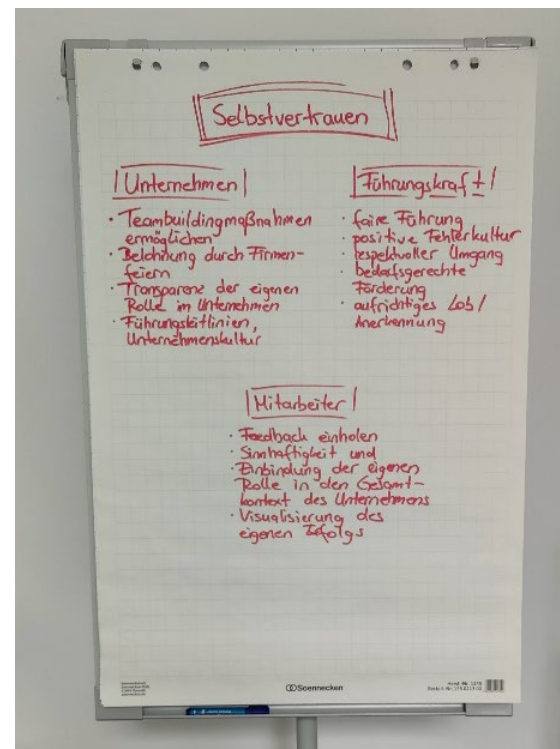 Selbstvertrauen
Unternehmen
· Teambuildingmaßnahmen
ermöglichen
· Belohnung durch Firmen-
feiern
· Transparenz der eigenen
Rolle im Unternehmen
· Führungsleitlinien,
Unternehmenskultur
Führungskraft
· faire Führung
· positive Fehlerkultur
· respektvoller Umgang
· bedarfsgerechte
Förderung
· aufrichtiges Lob/
Anerkennung
Mitarbeiter
· Feedback einholen
· Sinnhaftigkeit und
· Einbindung der eigenen
Rolle in den Gesamt-
kontext des Unternehmens
· Visualisierung des
eigenen Erfolgs
Soennecken